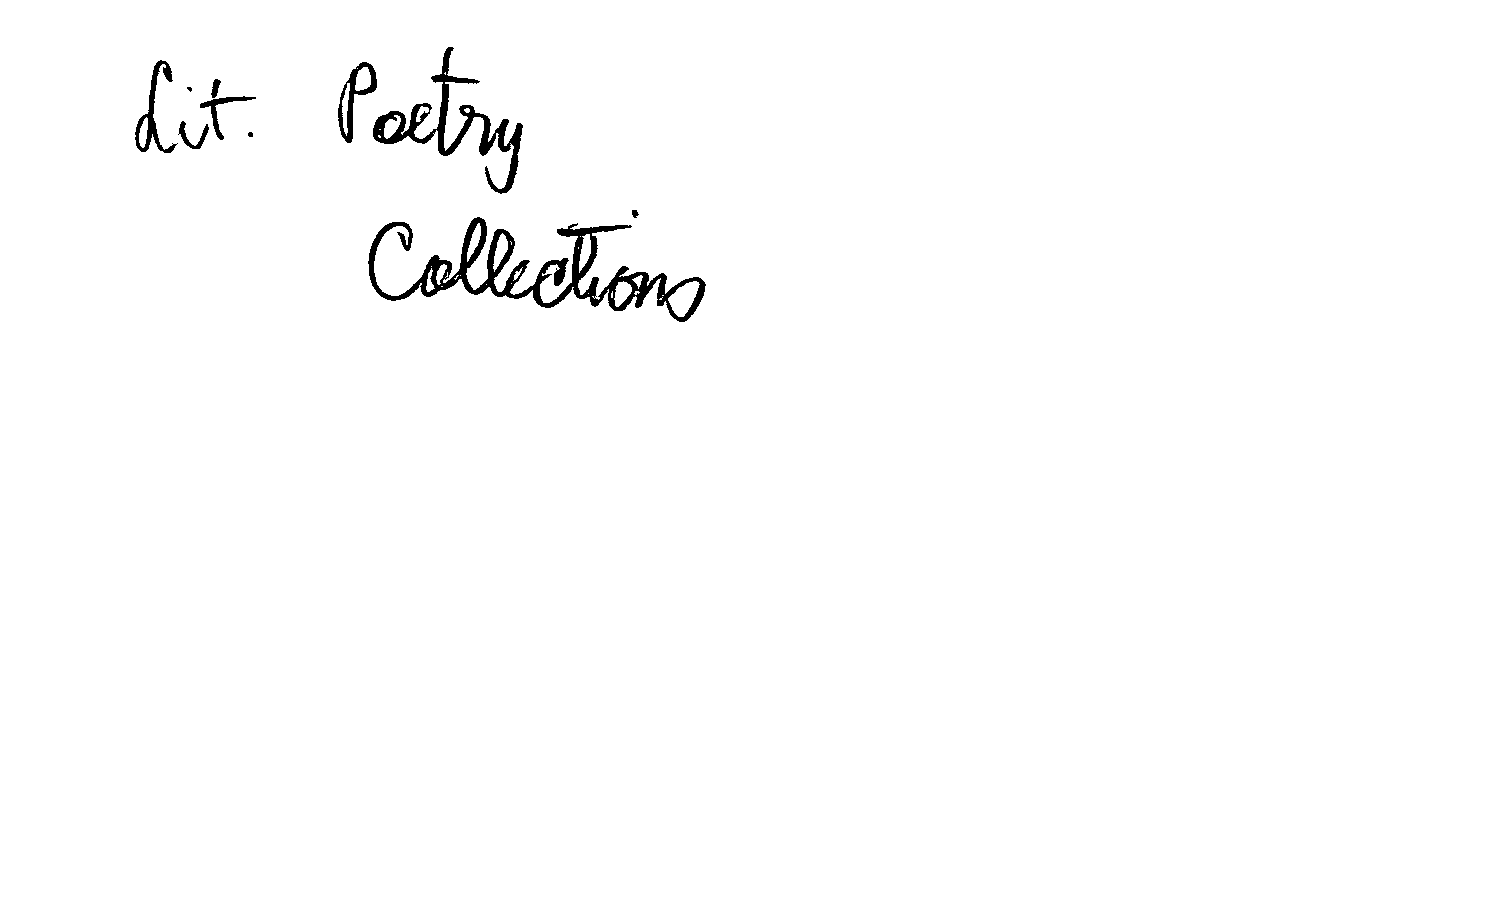 Lit. Poetry
Collections